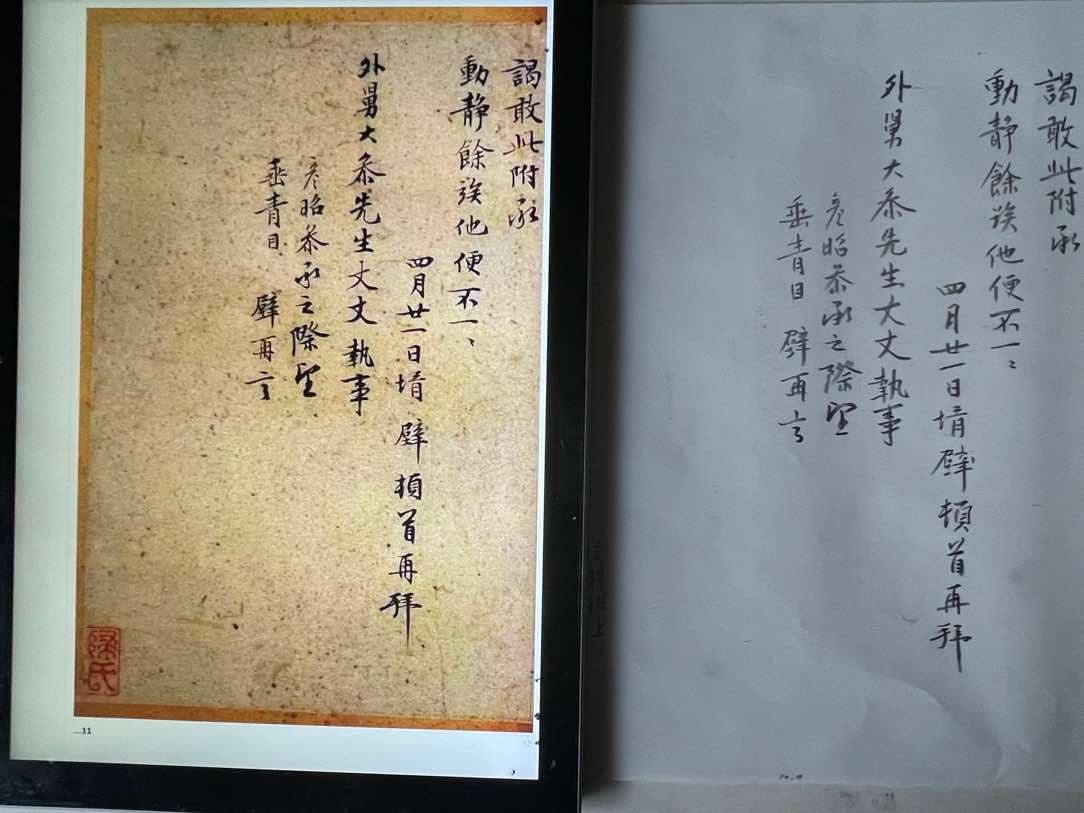 謁敢此附承
動靜餘族他便不一〻
四月廿一日壻 辟 頓首再拜
外舅大参先生丈丈執事
彦昭参承之際望
垂青目 辟再言
11
謁敢此附承
動靜餘族他便不一〻
四月廿一日壻 辟 頓首再拜
外舅大参先生大丈執事
彦昭参承之際望
垂青目 辟再言